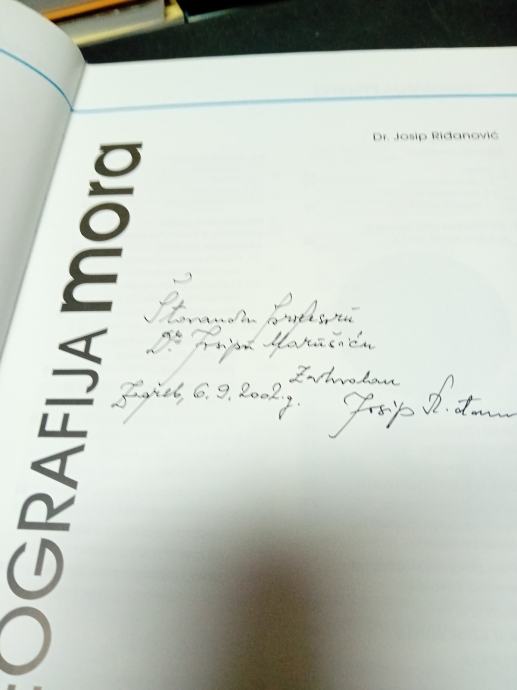 Dr. Josip Riđanović
OGRAFIJA mora
Štovanom profesoru
Dr. Josipu Marušiću
Zahvalan
Zagreb, 6.9.2002.g.
Josip